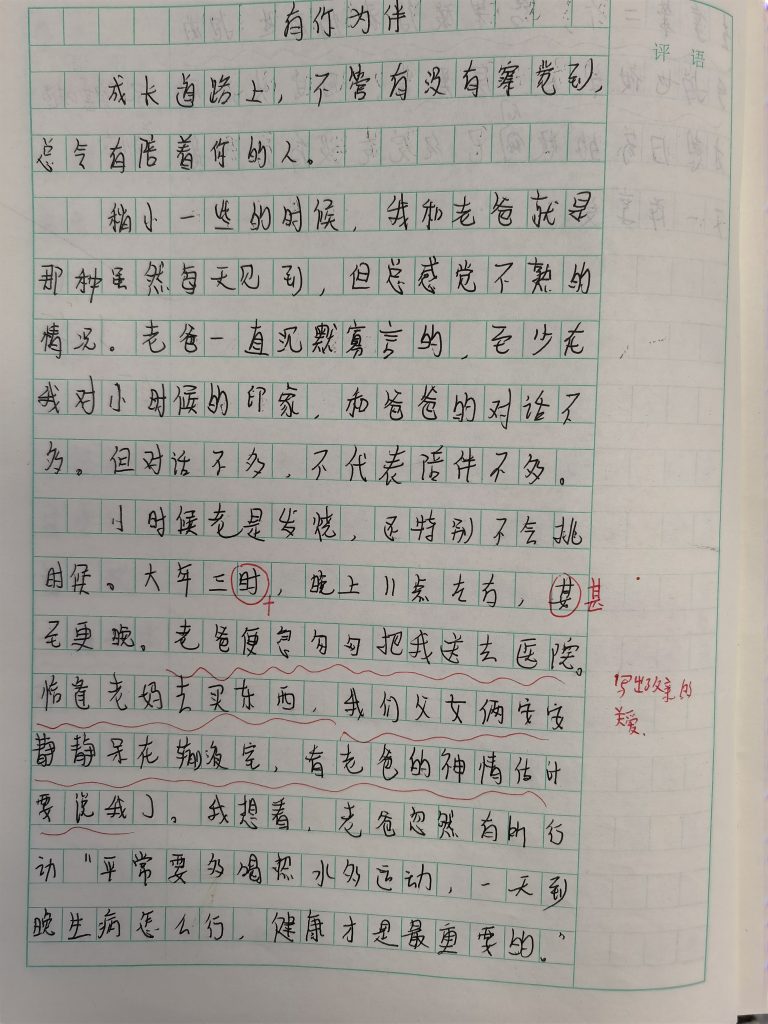 有你为伴
评语
成长道路上，不管有没有察觉到，
总会有陪着你的人。
稍小一些的时候，我和老爸就是
那种虽然每天见到，但总感觉不熟的
情况。老爸一直沉默寡言的，至少在
我对小时候的印象，和爸爸的对话不
多。但对话不多，不代表陪伴不多。
小时候老是发烧，还特别不会挑
时候。大年三时，晚上11点左右，甚 甚
至更晚。老爸便急匆匆把我送去医院。
恰逢老妈去买东西，我们父女俩安安 写出父亲的
静静呆在输液室，看老爸的神情估计 关爱.
要说我了。我想着，老爸忽然有所行
动“平常要多喝热水多运动，一天到
晚生病怎么行，健康才是最重要的。”